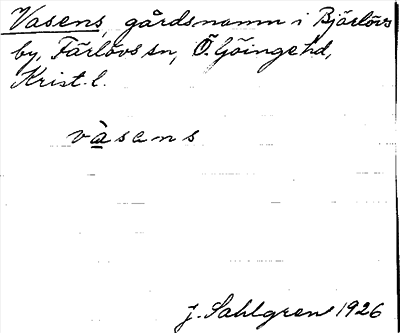 Vasens, gårdsnamn i Bjärlövs
by, Färlövs sn, Ö. Göinge hd,
Krist. l.
và s a n s
J. Sahlgren 1926